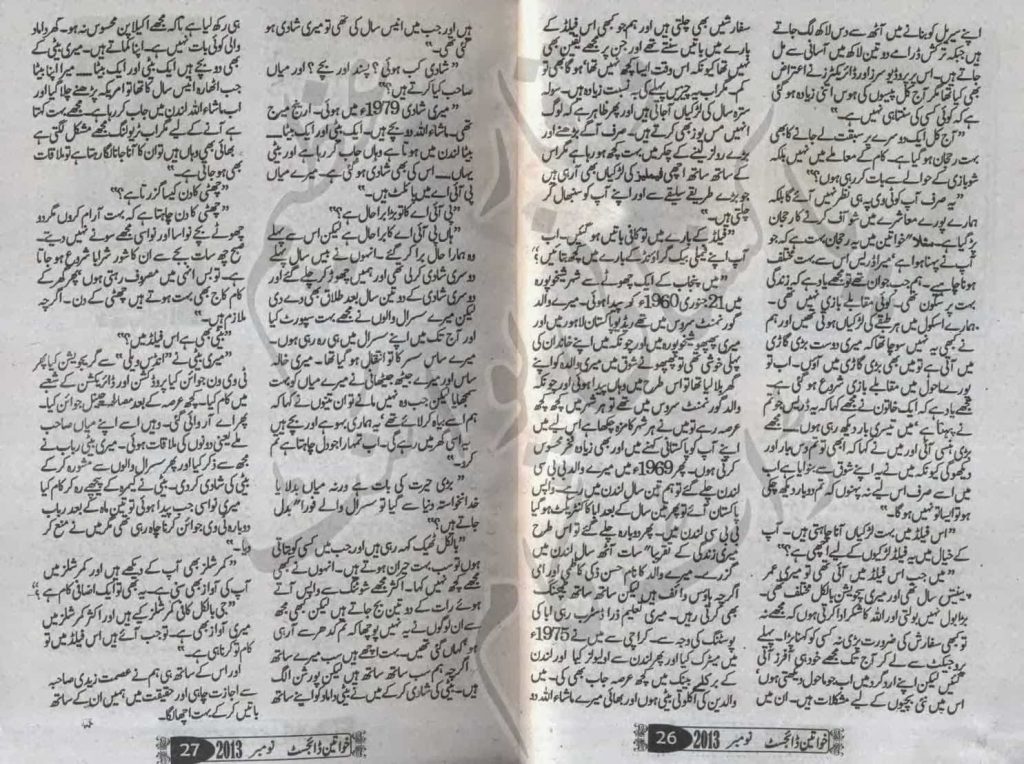 اپنے سیریل کو بنانے میں آٹھ سے دس لاکھ لگ جاتے
ہیں جبکہ ترکش ڈرامے دو تین لاکھ میں آسانی سے مل
جاتے ہیں۔ اس پر پروڈیوسرز اور ڈائریکٹرز نے اعتراض
بھی کیا تھا مگر آج کل پیسوں کی ہوس اتنی زیادہ ہوگئی
ہے کہ کوئی کسی کی سنتا ہی نہیں ہے۔"
"آج کل ایک دوسرے پر سبقت لے جانے کا بھی
بہت رجحان ہوگیا ہے۔ کام کے معاملے میں نہیں بلکہ
شوبازی کے حوالے سے بات کر رہی ہوں؟"
"یہ صرف آپ کو ٹی وی پہ ہی نظر نہیں آئے گا بلکہ
ہمارے پورے معاشرے میں شو آف کرنے کا رجحان
بڑھ گیا ہے۔ مثلاً" خواتین میں یہ رجحان بہت ہے کہ جو
تم نے پہنا ہوا ہے، میرا ڈریس اس سے بہت مختلف
ہونا چاہیے۔ ہم جب جوان تھے تو مجھے یاد ہے کہ زندگی
بہت پر سکون تھی۔ کوئی مقابلے بازی نہیں تھی۔
ہمارے اسکول میں ہر طبقے کی لڑکیاں ہوتی تھیں اور ہم
نے بھی یہ نہیں سوچا تھا کہ میری دوست بڑی گاڑی
میں آتی ہے تو میں بھی بڑی گاڑی میں آؤں۔ اب تو
پورے ماحول میں مقابلے بازی شروع ہو گئی ہے۔
مجھے یاد ہے کہ ایک خاتون نے مجھے کہا کہ یہ ڈریس جو تم
نے پہنا ہے "میں تیسری بار دیکھ رہی ہوں۔" مجھے
بڑی ہنسی آئی اور میں نے کہا کہ ابھی تو تم دس بار اور
دیکھو گی کیونکہ میں نے یہ اپنے شوق سے بنوایا ہے اب
میں اسے صرف اس لیے نہ پہنوں کہ تم دوبارہ دیکھ چکی
ہو تو ایسا تو نہیں ہوگا۔"
"اس فیلڈ میں بہت لڑکیاں آنا چاہتی ہیں۔ آپ
کے خیال میں یہ فیلڈ لڑکیوں کے لیے اچھی ہے؟"
"میں جب اس فیلڈ میں آئی تھی تو میری عمر
پینتیس سال تھی اور میری سچویشن بالکل مختلف تھی۔
بڑا بول نہیں بولتی اور اللہ کا شکر ادا کرتی ہوں کہ مجھے نہ
تو کبھی سفارش کی ضرورت پڑی نہ کسی کو کہنا پڑا۔ پہلے
پروجیکٹ سے لے کر آج تک مجھے خود ہی آفرز آتی
گئیں لیکن اپنے اردگرد میں اب جو ماحول دیکھتی ہوں
اس میں نئی بچیوں کے لیے مشکلات ہیں۔ ان میں
سفارشیں بھی چلتی ہیں اور ہم جو کبھی اس فیلڈ کے
بارے میں باتیں سنتے تھے اور جن پر مجھے یقین بھی
نہیں تھا کیونکہ اس وقت ایسا کچھ نہیں تھا، ہوگا بھی تو
کم۔ مگر اب یہ چیزیں پہلے کی نسبت زیادہ ہیں۔ سولہ
سترہ سال کی لڑکیاں آجاتی ہیں اور پھر ظاہر ہے کہ لوگ
انہیں مس یوز بھی کرتے ہیں۔ صرف آگے بڑھنے اور
بڑے رولز لینے کے چکر میں بہت کچھ ہو رہا ہے مگر اس
کے ساتھ ساتھ اچھی فیملیز کی لڑکیاں بھی آرہی ہیں
جو بڑے طریقے سلیقے سے اور اپنے آپ کو سنبھال کر
چلتی ہیں۔"
"فیلڈ کے بارے میں تو کافی باتیں ہو گئیں۔ اب
آپ اپنے فیملی بیک گراؤنڈ کے بارے میں کچھ بتائیں؟"
"میں پنجاب کے ایک چھوٹے سے شہر شیخوپورہ
میں 21 جنوری 1960ء کو پیدا ہوئی۔ میرے والد
گورنمنٹ سروس میں تھے ریڈیو پاکستان لاہور میں اور
میری پھپھو شیخوپورہ میں اور چونکہ میں اپنے خاندان کی
پہلی خوشی تھی تو پھپھو نے خوشی خوشی میں میری والدہ کو اپنے
گھر بلا لیا تھا تو اس طرح میں وہاں پیدا ہوئی اور چونکہ
والد گورنمنٹ سروس میں تھے تو ہر شہر میں کچھ کچھ
عرصہ رہے تو میں نے ہر شہر کا مزہ چکھا ہے اس لیے میں
اپنے آپ کو پاکستانی کہنے میں اور بھی زیادہ فخر محسوس
کرتی ہوں۔ پھر 1969ء میں میرے والد بی بی سی
لندن چلے گئے تو ہم تین سال لندن میں رہے۔ واپس
پاکستان آئے تو پھر تین سال کے بعد ابا کا کنٹریکٹ ہو گیا
بی بی سی لندن میں۔ پھر دوبارہ چلے گئے تو اس طرح
میری زندگی کے تقریباً" سات آٹھ سال لندن میں
گزرے۔ میرے والد کا نام حسن ذکی کاظمی اور امی
اگرچہ ہاؤس وائف ہیں لیکن ساتھ ساتھ ٹیچنگ
بھی کرتی رہیں۔ میری تعلیم ذرا ڈسٹرب رہی ابا کی
پوسٹنگ کی وجہ سے۔ کراچی سے میں نے 1975ء
میں میٹرک کیا اور پھر لندن سے اولیولز کیا اور لندن
کے برکلے بینک میں کچھ عرصہ جاب بھی کی۔ میں
والدین کی اکلوتی بیٹی ہوں اور بھائی میرے ماشاء اللہ دو
خواتین ڈائجسٹ نومبر 2013 26
ہیں اور جب میں انیس سال کی تھی تو میری شادی ہو
گئی تھی۔"
"شادی کب ہوئی؟ پسند اور بچے؟ اور میاں
صاحب کیا کرتے ہیں؟"
"میری شادی 1979ء میں ہوئی۔ ارینج میرج
تھی۔ ماشاء اللہ دو بچے ہیں۔ ایک بیٹی اور ایک بیٹا۔
بیٹا لندن میں ہوتا ہے وہاں جاب کر رہا ہے اور بیٹی
یہاں۔۔۔ اس کی بھی شادی ہو گئی ہے۔ میرے میاں
پی آئی اے میں پائلٹ ہیں۔"
"پی آئی اے کا تو بڑا برا حال ہے؟"
"ہاں پی آئی اے کا برا حال ہے لیکن اس سے پہلے
وہ ہمارا حال برا کر گئے۔ انہوں نے بیس سال پہلے
دوسری شادی کرلی تھی اور ہمیں چھوڑ کر چلے گئے اور
دوسری شادی کے دو تین سال بعد طلاق بھی دے دی
لیکن میرے سسرال والوں نے مجھے بہت سپورٹ کیا
اور آج تک میں اپنے سسرال میں ہی رہ رہی ہوں۔
میرے ساس سسر کا تو انتقال ہو گیا تھا۔ میری خالہ
ساس اور میرے جیٹھ جیٹھانی نے میرے میاں کو بہت
سمجھایا لیکن جب وہ نہیں مانے تو ان تینوں نے کہا کہ
ہم اسے بیاہ کر لائے تھے "یہ ہماری بہو ہے اور بچے ہیں
یہ اسی گھر میں رہے گی۔ اب تمہارا جو دل چاہتا ہے تم
کرو۔"
"بڑی حیرت کی بات ہے ورنہ میاں بدلا یا
خدانخواستہ دنیا سے گیا تو سسرال والے فوراً" بدل
جاتے ہیں؟"
"بالکل ٹھیک کہہ رہی ہیں اور جب میں کسی کو بتاتی
ہوں تو سب بہت حیران ہوتے ہیں۔ انہوں نے کبھی
مجھے کچھ نہیں کہا۔ اکثر مجھے شوٹنگ سے واپس آتے
ہوئے رات کے دو تین بج جاتے ہیں لیکن کبھی مجھ
سے ان لوگوں نے یہ نہیں پوچھا کہ تم کدھر سے آرہی
ہو کہاں گئی تھیں۔ بہت اچھے ہیں سب میرے ساتھ
اگرچہ ہم سب ساتھ ساتھ نہیں ہیں لیکن پورشن الگ
ہیں۔ بیٹی کی شادی کر کے میں نے بیٹی داماد کو اپنے ساتھ
ہی رکھ لیا ہے تاکہ مجھے اکیلا پن محسوس نہ ہو۔ گھر داماد
والی کوئی بات نہیں ہے۔ اپنا کماتے ہیں۔ میری بیٹی کے
بھی دو بچے ہیں ایک بیٹی اور ایک بیٹا۔۔۔ میرا اپنا بیٹا
جب اٹھارہ انیس سال کا تھا تو امریکہ پڑھنے چلا گیا اور
اب ماشاء اللہ لندن میں جاب کر رہا ہے۔ مجھے بہت کہتا
ہے آنے کے لیے مگر اب ٹریولنگ مجھے مشکل لگتی ہے
بھائی بھی وہاں ہیں تو ان کا آنا جانا لگا رہتا ہے تو ملاقات
بھی ہو جاتی ہے۔"
"چھٹی کا دن کیسا گزرتا ہے؟"
"چھٹی کا دن چاہتا ہے کہ بہت آرام کروں مگر دو
چھوٹے بچے نواسا اور نواسی مجھے سونے نہیں دیتے۔
صبح چھ سات بجے سے ان کا شور شرابا شروع ہو جاتا
ہے۔ تو بس انہی میں مصروف رہتی ہوں پھر گھر کے
کام کاج بھی بہت ہوتے ہیں چھٹی کے دن۔ اگرچہ
ملازم ہیں۔"
"بیٹی بھی ہے اس فیلڈ میں؟"
"میری بیٹی نے "انڈس ویلی" سے گریجویشن کیا پھر
ٹی وی ون جوائن کیا پروڈکشن اور ڈائریکشن کے شعبے
میں کام کیا۔ کچھ عرصہ کے بعد مصالحہ چینل جوائن کیا۔
پھر اے آر وائی گئی۔ وہیں اسے اپنے میاں صاحب
ملے یعنی دونوں کی ملاقات ہوئی۔ میری بیٹی رباب نے
مجھ سے ذکر کیا اور پھر سسرال والوں سے مشورہ کر کے
بیٹی کی شادی کردی۔ بیٹی نے کیمرہ کے پیچھے رہ کر کام کیا
میری نواسی جب پیدا ہوئی تو تین ماہ کے بعد رباب
دوبارہ ٹی وی جوائن کرنا چاہ رہی تھی مگر میں نے منع کر
دیا۔"
"کمرشلز بھی آپ کے دیکھے ہیں اور کمرشلز میں
آپ کی آواز بھی سنی ہے۔ یہ بھی تو ایک اضافی کام ہے؟"
"جی بالکل کافی کمرشلز کیے ہیں اور اکثر کمرشلز میں
میری آواز بھی ہے۔ تو جب آئے ہیں اس فیلڈ میں تو
کام تو کرنا ہی ہے۔"
اور اس کے ساتھ ہی ہم نے عصمت زیدی صاحبہ
سے اجازت چاہی اور حقیقت میں ہمیں ان کے ساتھ
باتیں کر کے بہت اچھا لگا۔
خواتین ڈائجسٹ نومبر 2013 27